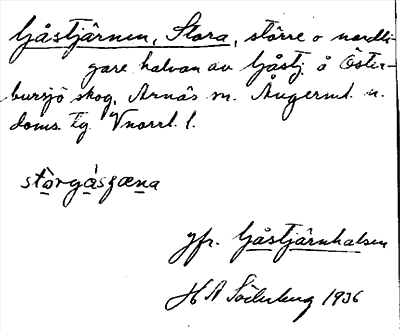 Gåstjärnen, Stora, större o nordli-
gare halvan av Gåstj. å Öster-
bursjö skog, Arnäs sn. Ångerml. n.
doms. tg Vnorrl. l.
storgåsʃæna
jfr. Gåstjärnhalsen
H A Söderberg 1936